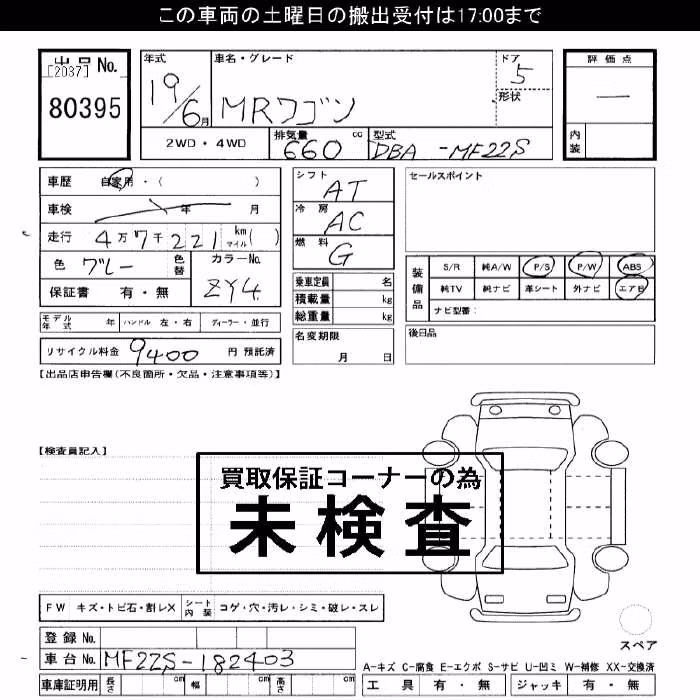 この車両の土曜日の搬出受付は17:00まで
出品 No.
[2037]
80395
年式 車名・グレード ドア
19/6月 MRワゴン 5
形状
評価点
一
内装
2WD・4WD 排気量 cc 型式
660 DBA-MF22S
車歴 自家用・( )
車検 年 月
走行 4万7千221 km マイル ( )
色 グレー 色替 カラーNo.
ZY4
保証書 有・無
モデル年式 年 ハンドル 左・右 ディーラー・並行
リサイクル料金 9400 円 預託済
シフト AT
冷房 AC
燃料 G
乗車定員 名
積載量 kg
総重量 kg
名変期限
月 日
セールスポイント
装備品
S/R 純A/W P/S P/W ABS
純TV 純ナビ 革シート 外ナビ エアB
ナビ型番:
後日品
【出品店申告欄(不良箇所・欠品・注意事項等)】
【検査員記入】
買取保証コーナーの為
未検査
FW キズ・トビ石・割レX シート内装 コゲ・穴・汚レ・シミ・破レ・スレ
登録 No.
車台 No. MF22S-182403
車庫証明用 長さ cm 幅 cm 高さ cm
スペア
A-キズ C-腐食 E-エクボ S-サビ U-凹ミ W-補修 XX-交換済
工具 有・無 ジャッキ 有・無